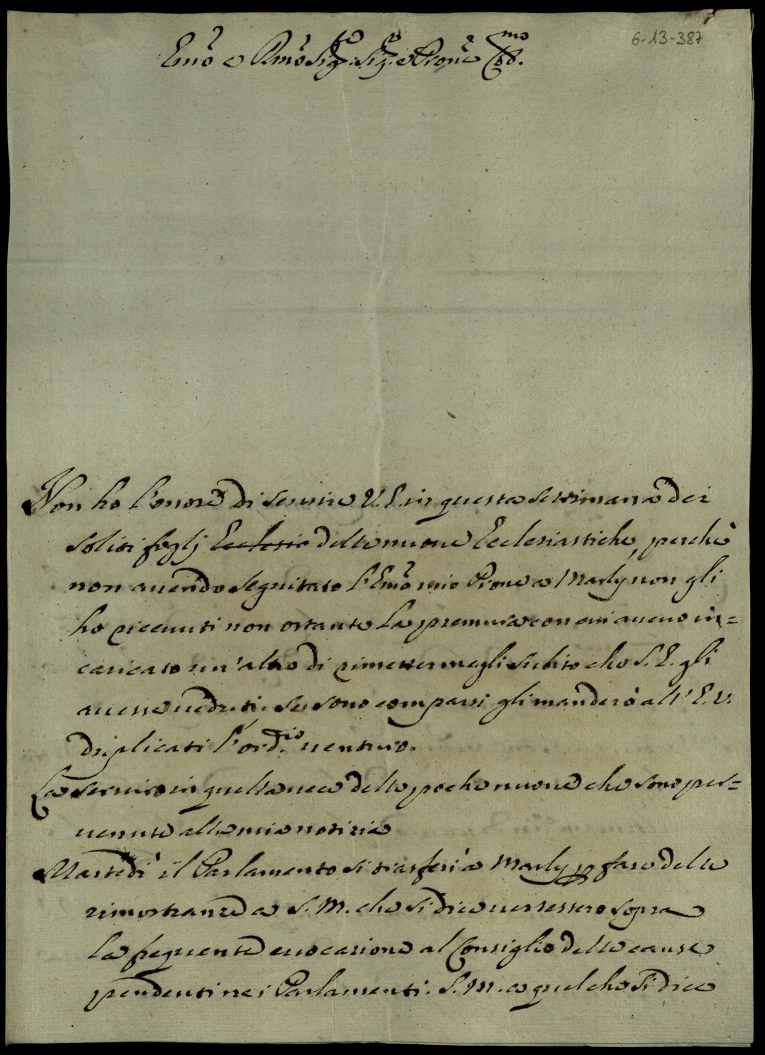 6-13-387
Emo e Rmo Sigr. Sigr. e Prone Colmo.
Non ho l'onore di servire V. E. in questa settimana dei
soliti foglj Ecclesia delle nuove Ecclesiastiche, perchè
non avendo seguitato l'Emo mio Prone a Marly non gli
ho ricevuti non ostante la premura con cui avevo in=
caricato un'altro di rimettermegli subito che S. E. gli
avesse veduti. Se sono comparsi gli manderò all'E. V.
duplicati l'ord.io venturo.
La servirò in quella vece delle poche nuove che sono per=
venute alla mia notizia
Martedì il Parlamento si trasferì a Marly p fare delle
rimostranze a S. M. che si dice versessero sopra
la frequente evocazione al Consiglio delle cause
pendenti nei Parlamenti. S. M. a quel che si dice